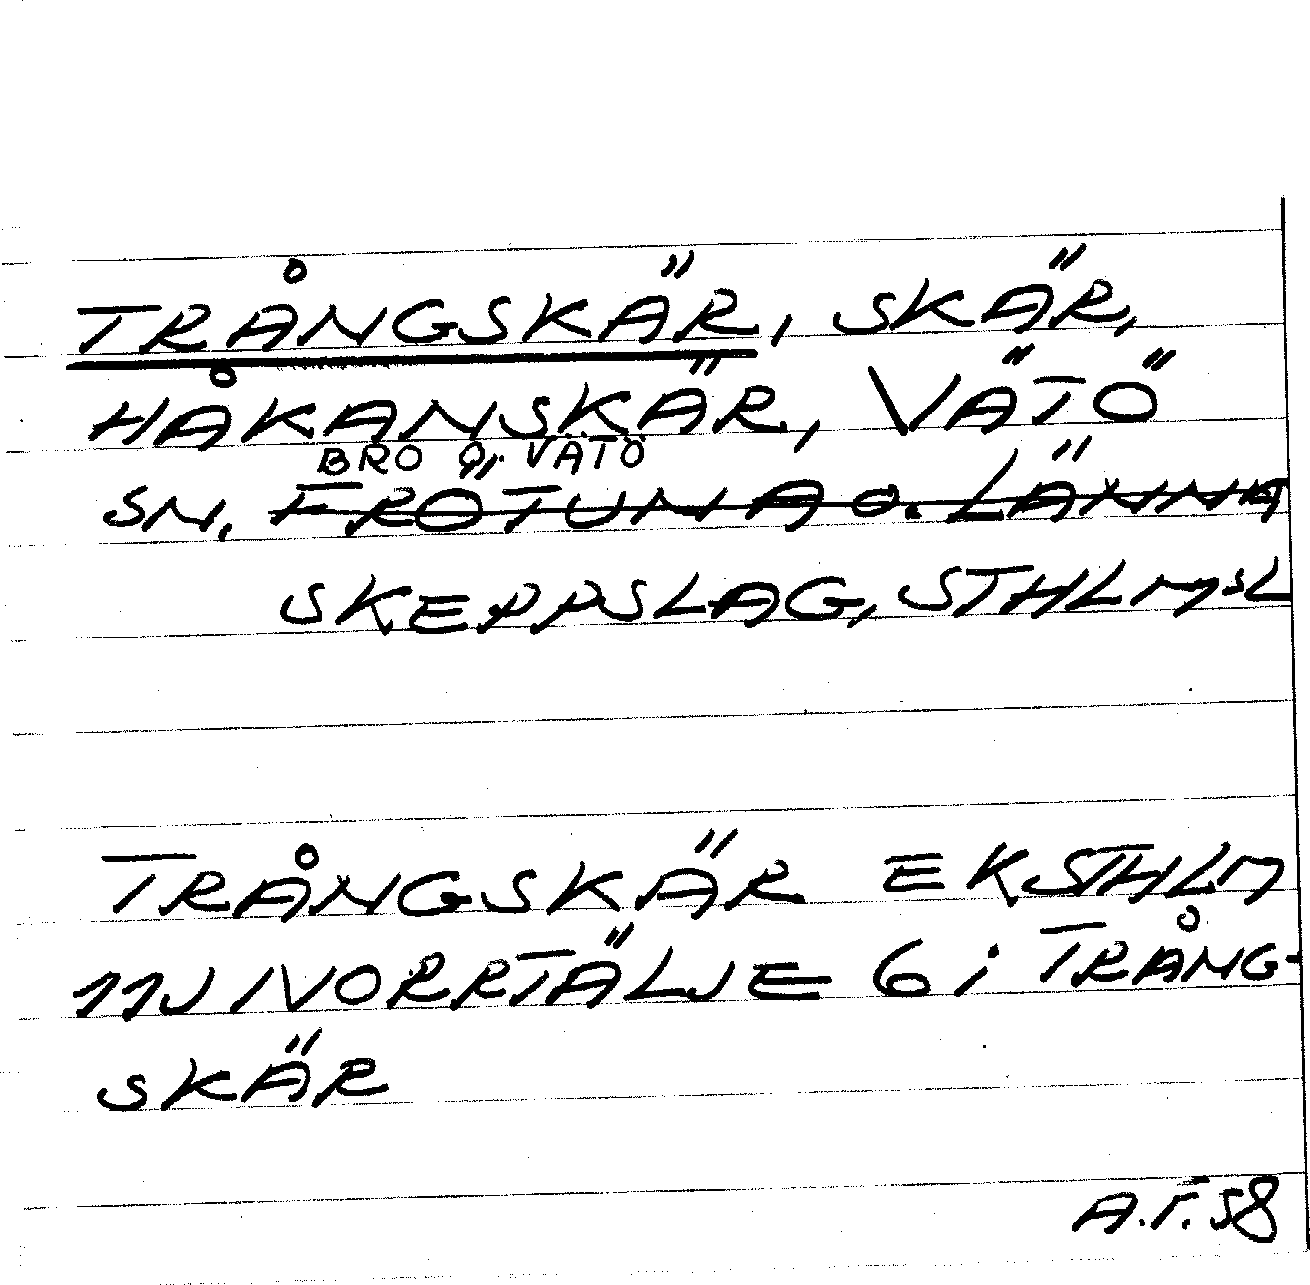 TRÅNGSKÄR, SKÄR,
HÅKANSKÄR, VÄTÖ
BRO O. VÄTÖ
SN. FRÖTUNA O. LÄNNA
SKEPPSLAG, STHLMSL
TRÅNGSKÄR EKSTHLM
11J NORRTÄLJE 6 i TRÅNG-
SKÄR
A.F. 58